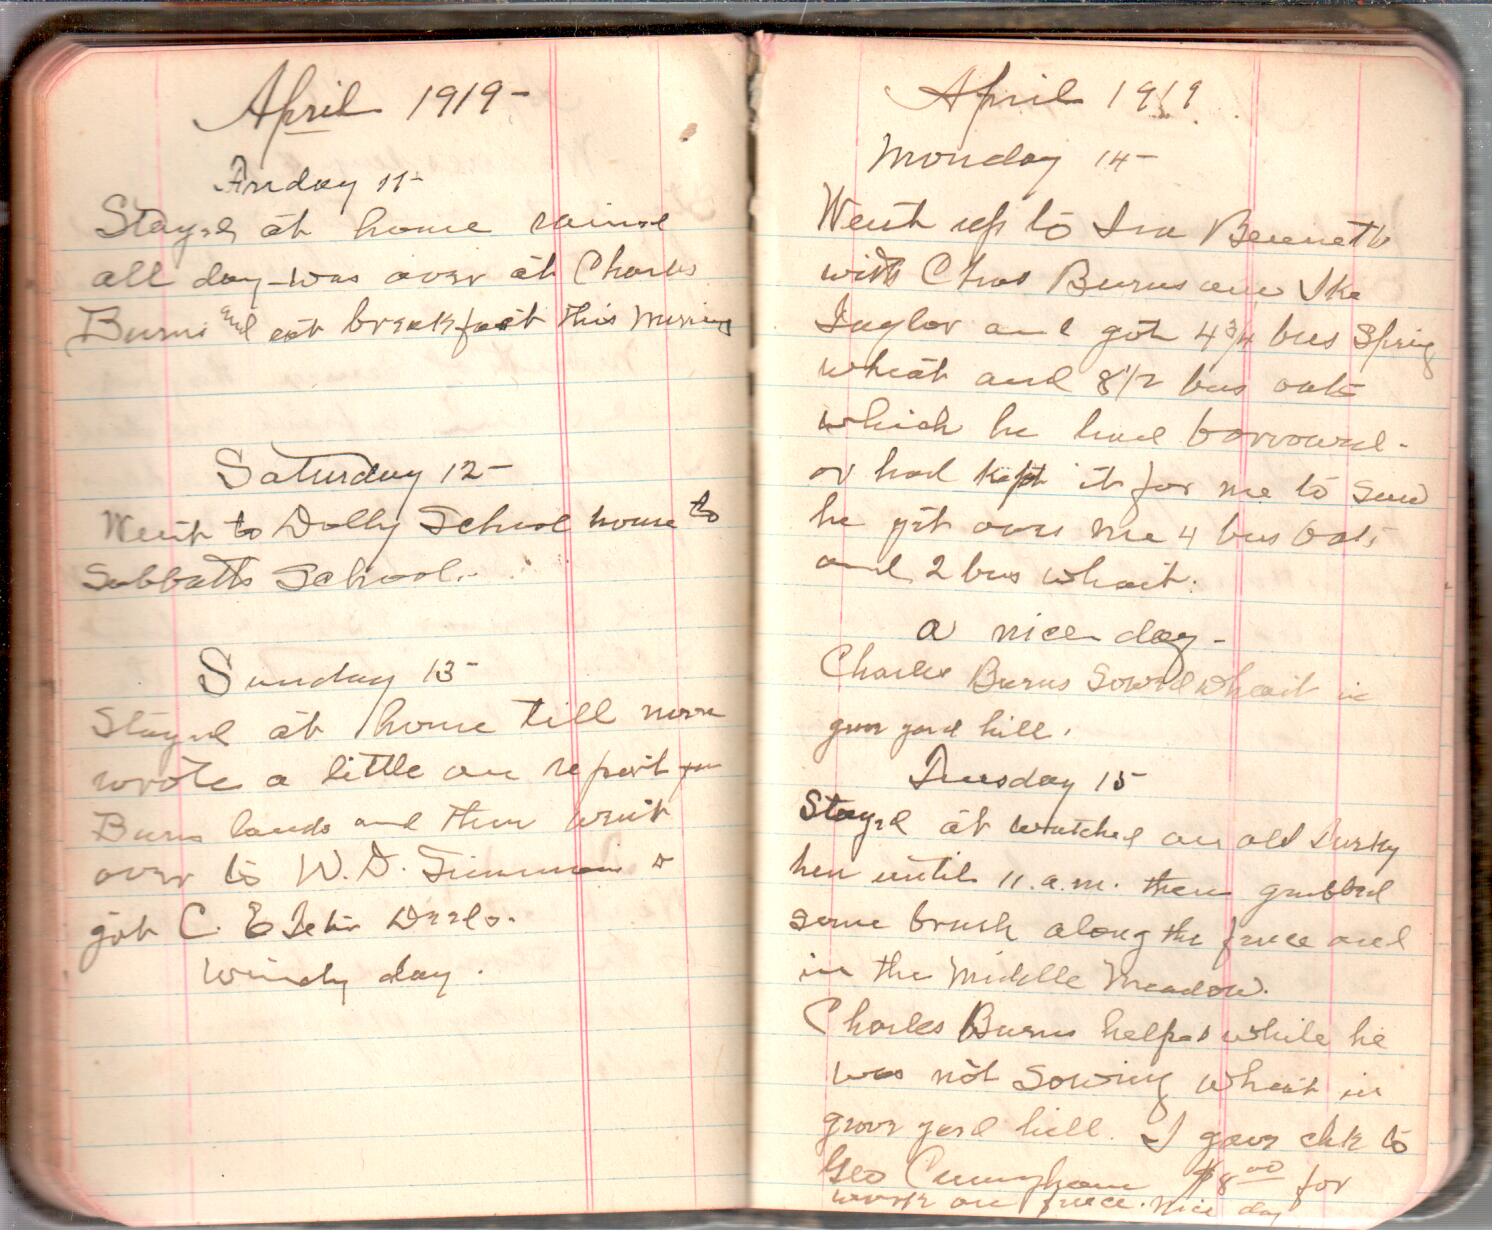 April 1919-
Friday 11-
Stayed at home rained
all day - was over at Charles
Burns and eat breakfast this morning
Saturday 12-
Went to Dolly School house to
Sabbath School.
Sunday 13-
Stayed at home till noon
wrote a little on report for
Burns lands and then went
over to W. D. Simmons &
got C. E Deeds.
Windy day.
April 1919
Monday 14-
Went up to Ira Bennetts
with Chas Burns and Ike
Taylor and got 4 3/4 bus Spring
wheat and 8 1/2 bus oats
which he had borrowed -
or had kept it for me to sow
he yet owes me 4 bus oats
and 2 bus wheat.
a nice day -
Charles Burns sowed wheat in
grave yard hill.
Tuesday 15
Stayed at watched an old Turkey
hen until 11 a.m. then grubbed
some brush along the fence and
in the Middle Meadow.
Charles Burns helped while he
was not sowing wheat in
grave yard hill. I gave chk to
Geo Cunningham $8.00 for
work on fence. nice day